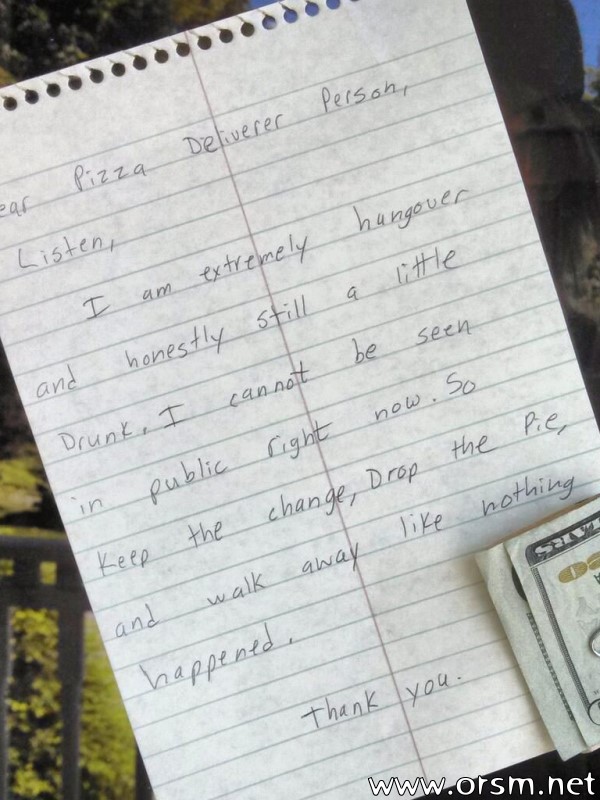 ear Pizza Deliverer Person,
Listen,
I am extremely hungover
and honestly still a little
Drunk. I cannot be seen
in public right now. So
Keep the change, Drop the Pie,
and walk away like nothing
happened.
Thank you.
www.orsm.net